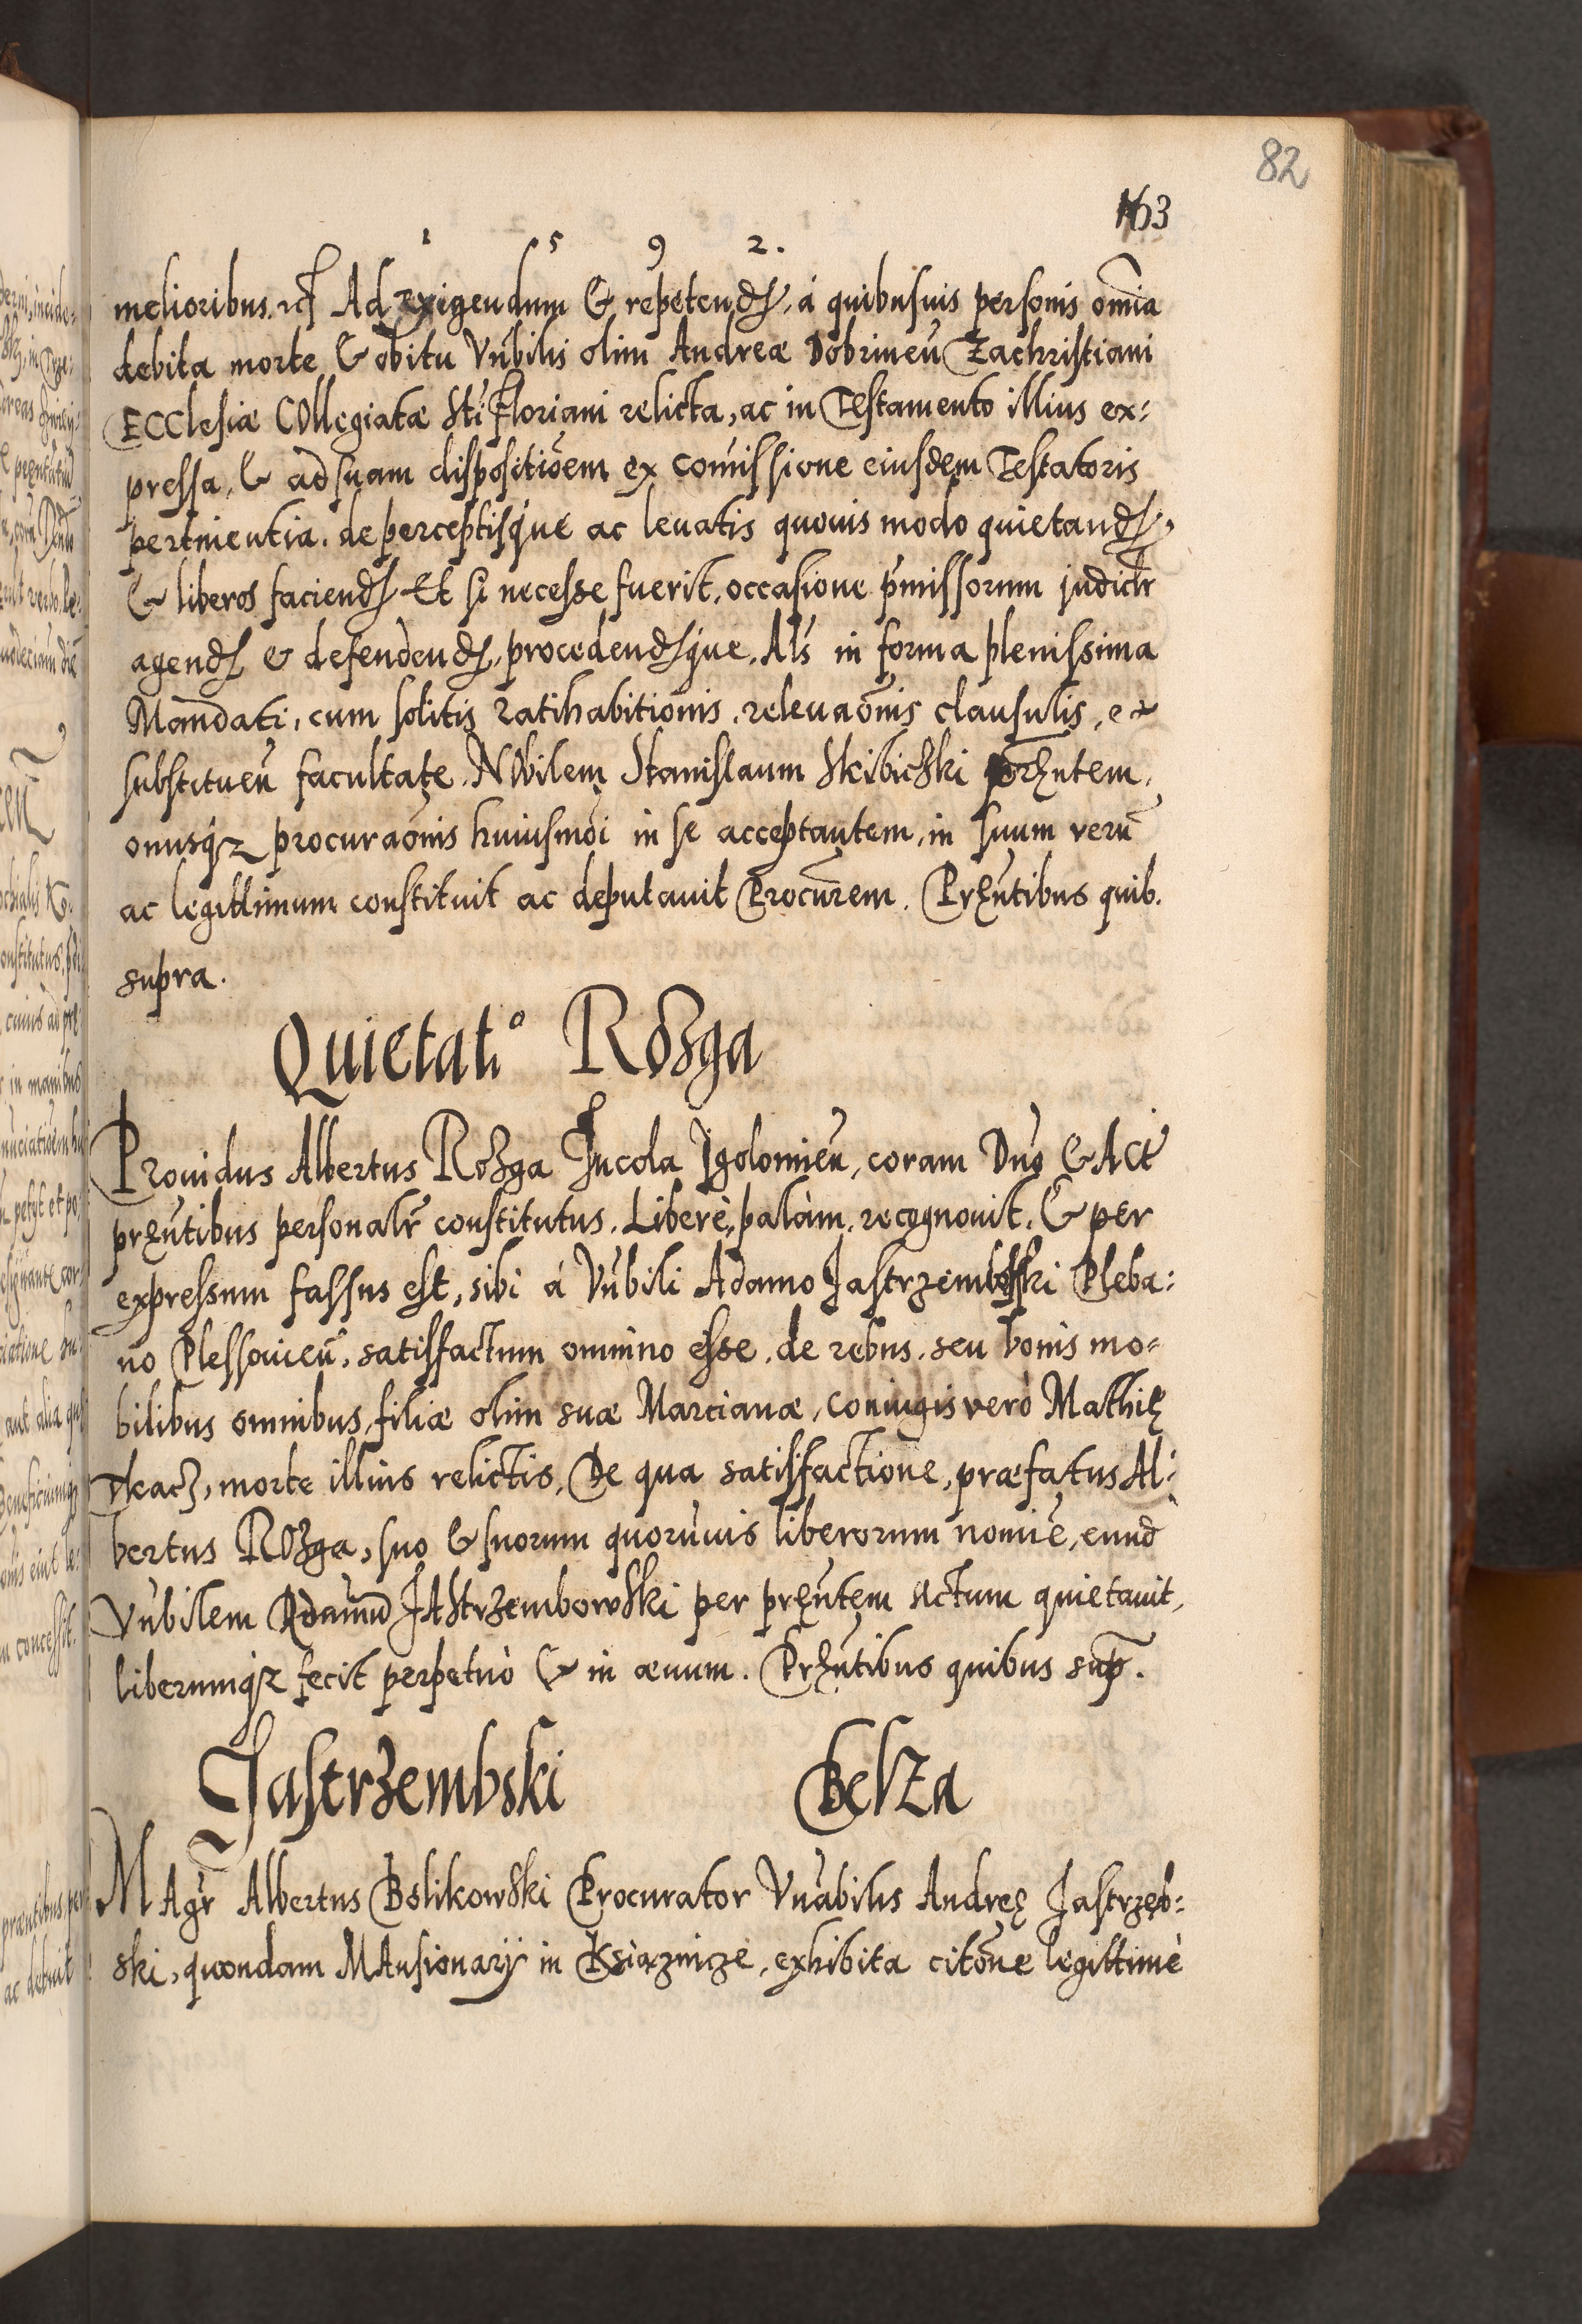 82
163
1 5 9 2.
melioribus. etc Ad exigendum & repetend. á quibusuis personis om̃ia
debita morte & obitu Vñbilis olim Andreæ Dobrineñ Zachristiani
Ecclesiæ Collegiatæ Sti Floriani relicta, ac in Testamento illius ex:
pressa, & ad suam dispositiõem ex comissione eiusdem Testatoris
pertinentia. de perceptisque ac leuatis quouis modo quietand.
& liberos faciend. Et si necesse fuerit, occasione p̃missorum judiclr
agend & defendend, procedendque. Als in forma plenissima
Mandati, cum solitis ratihabitionis, releuaõnis clausulis, et
substitueñ facultate. Nobilem Stanislaum Skibicski prẽntem,
onusqꝫ procuraõnis huiusmõi in se acceptantem, in suum verũ
ac legittimum constituit ac deputauit Procurẽm. Pręñtibus quib.
supra.
Quietatio Rozga
Prouidus Albertus Rozga Incola Igolomieñ, coram Dño & Act
pręñtibus personalr̃ constitutus. Liberè, palàm, recognouit, & per
expressum fassus est, sibi á Vñbili Adamo Jastrzembski Pleba:
no Plessouieñ, satisfactum omnino esse, de rebus, seu bonis mo=
bilibus omnibus, filiæ olim suæ Marcianæ, coniugis verò Mathię
Tkacz, morte illius relictis, De qua satisfactione, præfatus Al:
bertus Rozga, suo & suorum quorũuis liberorum nomiẽ, eund
Vñbilem Adamũ Jastrzembowski per pręñtem Actum quietauit,
liberumqꝫ fecit perpetuò & in æuum. Pręñtibus quibus sup̃.
Jastrzembski Belza
Magr̃ Albertus Bolikowski Procurator Vñabilis Andreę Jastrzęb:
ski, quondam Mansionarij in Książnicze, exhibita citõne legittimè